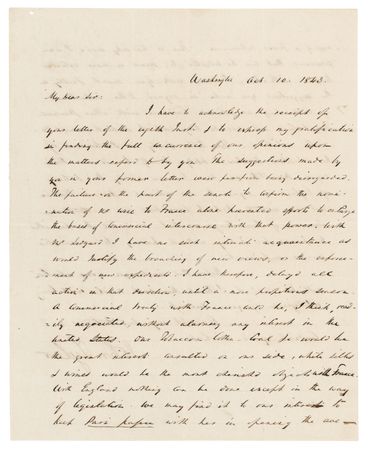 Washington Oct. 10. 1843.
My dear Sir:
I have to acknowledge the receipt of
your letter of the eighth Inst: & to express my gratification
in finding the full concurrence of our opinions upon
the matters referd to by you. The suggestions made by
you in your former letter were far from being disregarded.
The failure on the part of the senate to confirm the nomi-
nation of Mr Wise to France alone prevented efforts to enlarge
the basis of Commercial intercourse with that power. With
Mr Ledyard I have no such intimate acquaintance as
would Justify the broaching of new views, or the
-ment of new expedients. I have, therefore, delay'd all
action in that direction until a more propitious season.
A Commercial treaty with France could be, I think,
-ily negociated, without alarming any interest in the
United States. Our Tobacco Cotton &c would be
the great interest consulted on our side, while silks
& wines would be the most cherished objects with France.
With England nothing can be done except in the way
of legislation. We may find it to our interest to
keep Pari passu with her in opening the